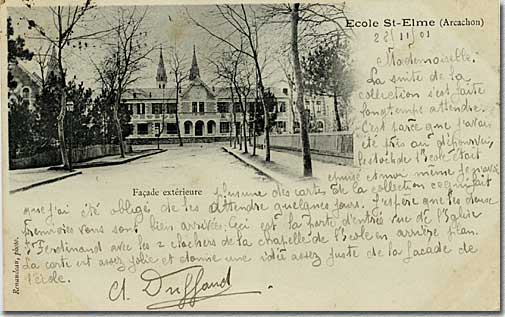 Ecole St-Elme (Arcachon)
22/11/01
Mademoiselle.
La suite de la
collection s'est faite
longtemps attendre.
C'est parce que j'avais
été pris au dépourvu,
le stock de l'Ecole était
épuisé et moi même je n'avais
Façade extérieure
plus une des cartes de la collection
que j'ai été obligé de les attendre quelques jours. J'espère que les douze
premières vous sont bien arrivées. Ceci est la porte d'entrée rue de l'Eglise
St Ferdinand avec les 2 clochers de la chapelle de l'école en arrière plan.
La carte est assez jolie et donne une idée assez juste de la façade de
l'école.
Ct. Duffaud
Renaudeau, phot.